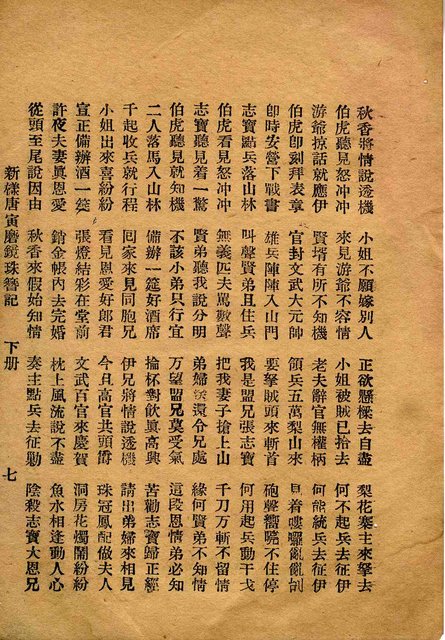 秋香將情說透機 小姐不願嫁別人 正欲懸樑去自盡 梨花寨主來拏去
伯虎聽見怒冲冲 來見游爺不容情 小姐被賊已抬去 何不起兵去征伊
游爺掠話就應伊 賢壻有所不知機 老夫辭官無權柄 何能統兵去征伊
伯虎卽刻拜表章 官封文武大元帥 領兵五萬梨山來 嘍囉亂亂
卽時安營下戰書 雄兵陣陣入山門 要拏賊頭來斬首 砲聲嚮嚮不住停
志寶點兵落山林 叫聲賢弟且住兵 我是盟兄張志寶 何用起兵動干戈
伯虎看見怒冲冲 無義匹夫罵數聲 把我妻子搶上山 千刀万斬不留情
志寶聽見着一驚 賢弟聽我說分明 弟婦送還令兄處 緣何賢弟不知情
伯虎聽見就知機 不該小弟只行宜 万望盟兄莫受氣 這段恩情弟必知
二人落馬入山林 備辦一筵好酒席 掄杯對飲眞高興 苦勸志寶歸正經
千起收兵就行程 囘家來見同胞兄 伊兄將情說透機 請出弟婦來相見
小姐出來喜紛紛 看見恩愛好郎君 今且高官共頭爵 珠冠鳳配做夫人
宣正備辦酒一筵 張燈結彩在堂前 文武百官來慶賀 洞房花燭鬧紛紛
許夜夫妻眞恩愛 銷金帳內去完婚 枕上風流說不盡 魚水相逢動人心
從頭至尾說因由 秋香來假始知情 奏主點兵去征勦 陰殺志寶大恩兄
新樣唐寅磨鏡珠簪記 下册 七